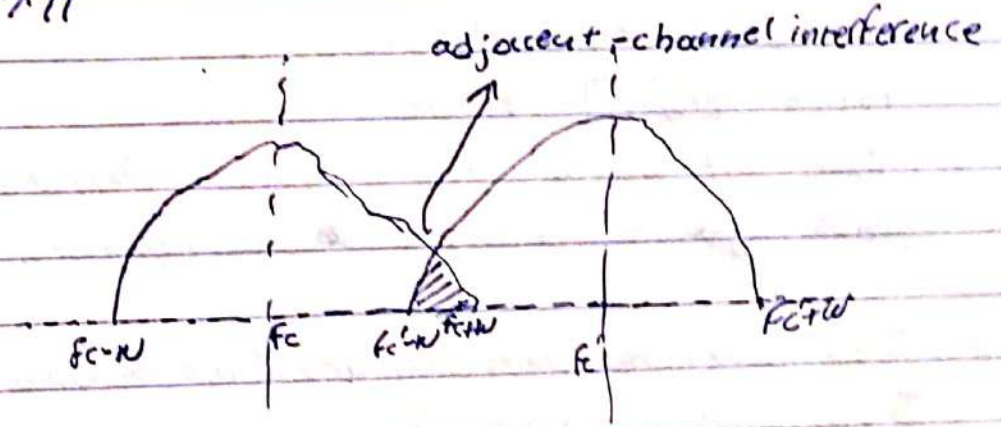 adjacent-channel interference
fc-w fc fc'-w fc+w fc fc'+w